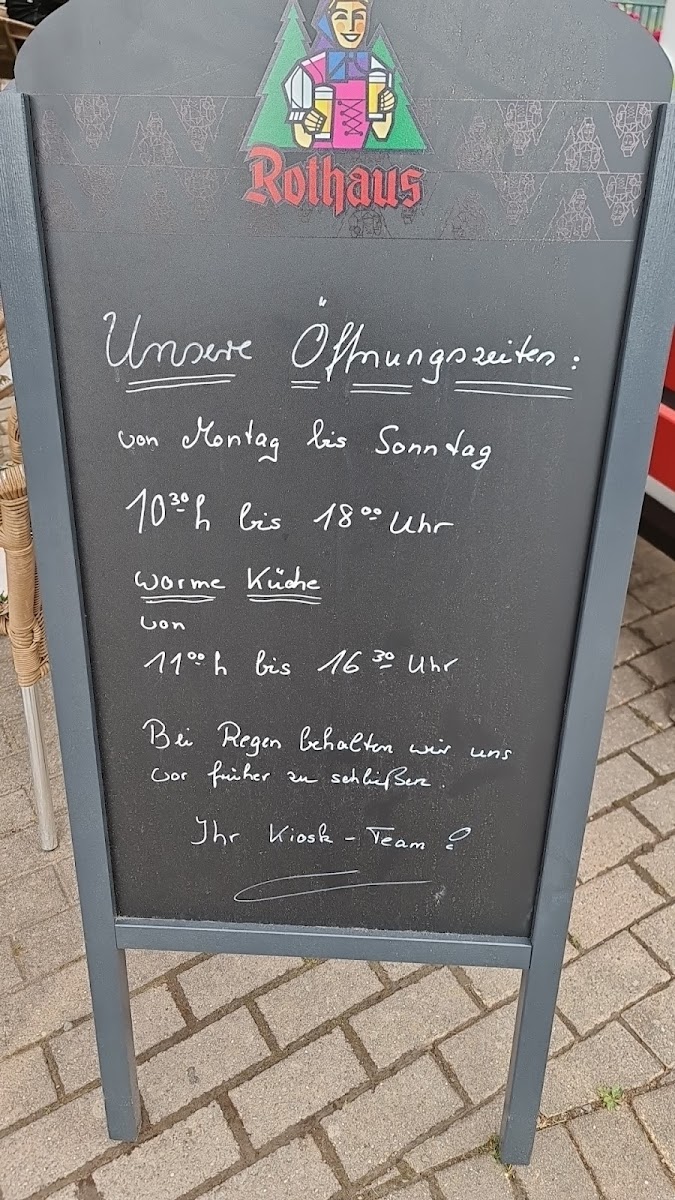 Rothaus
Unsere Öffnungszeiten:
von Montag bis Sonntag
10³⁰h bis 18⁰⁰ Uhr
warme Küche
von
11⁰⁰h bis 16³⁰ Uhr
Bei Regen behalten wir uns
vor früher zu schließen.
Ihr Kiosk-Team!